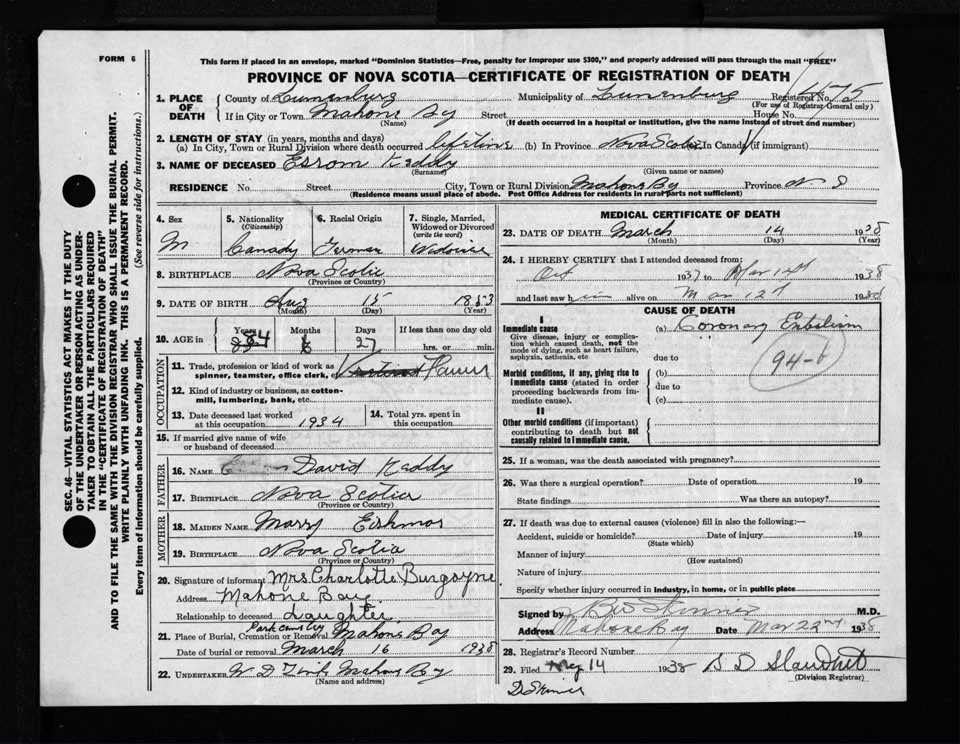 FORM 6
This form if placed in an envelope, marked "Dominion Statistics—Free, penalty for improper use $300," and properly addressed will pass through the mail "FREE"
PROVINCE OF NOVA SCOTIA—CERTIFICATE OF REGISTRATION OF DEATH
SEC. 46—VITAL STATISTICS ACT MAKES IT THE DUTY
OF THE UNDERTAKER OR PERSON ACTING AS UNDER-
TAKER TO OBTAIN ALL THE PARTICULARS REQUIRED
IN THE "CERTIFICATE OF REGISTRATION OF DEATH"
AND TO FILE THE SAME WITH THE DIVISION REGISTRAR WHO SHALL ISSUE THE BURIAL PERMIT.
WRITE PLAINLY WITH UNFADING INK. THIS IS A PERMANENT RECORD.
Every item of information should be carefully supplied. (See reverse side for instructions.)
1. PLACE OF DEATH
County of Lunenburg Municipality of Lunenburg Registered No. 475
(For use of Registrar General only)
If in City or Town Mahone Bay Street House No.
(Name) (If death occurred in a hospital or institution, give the name instead of street and number)
2. LENGTH OF STAY (in years, months and days)
(a) In City, Town or Rural Division where death occurred lifetime (b) In Province Nova Scotia In Canada (if immigrant)
3. NAME OF DECEASED Esrom Kaddy
(Surname) (Given name or names)
RESIDENCE No. Street City, Town or Rural Division Mahone Bay Province N S
(Residence means usual place of abode. Post Office Address for residents in rural parts not sufficient)
4. Sex
M
5. Nationality
(Citizenship)
Canady
6. Racial Origin
German
7. Single, Married,
Widowed or Divorced
(write the word)
8. BIRTHPLACE Nova Scotia
(Province or Country)
9. DATE OF BIRTH Aug 15 1853
(Month) (Day) (Year)
10. AGE in
Years Months Days If less than one day old
84 6 27 hrs. or min.
OCCUPATION
11. Trade, profession or kind of work as
spinner, teamster, office clerk, etc.
12. Kind of industry or business, as cotton-
mill, lumbering, bank, etc.
13. Date deceased last worked
at this occupation 1934
14. Total yrs. spent in
this occupation
15. If married give name of wife
or husband of deceased
FATHER
16. NAME David Kaddy
17. BIRTHPLACE Nova Scotia
(Province or Country)
MOTHER
18. MAIDEN NAME Marry
19. BIRTHPLACE Nova Scotia
(Province or Country)
20. Signature of informant Mrs. Charlotte Burgoyne
Address Mahone Bay
Relationship to deceased daughter
Park cemetry
21. Place of Burial, Cremation or Removal Mahone Bay
Date of burial or removal March 16 1938
22. UNDERTAKER Mahone Bay
(Name and address)
MEDICAL CERTIFICATE OF DEATH
23. DATE OF DEATH March 14 1938
(Month) (Day) (Year)
24. I HEREBY CERTIFY that I attended deceased from:
Oct 1937 to Mar 14th 1938
and last saw him alive on Mar 12th 1938
CAUSE OF DEATH
I
Immediate cause
Give disease, injury or complica-
tion which caused death, not the
mode of dying, such as heart failure,
asphyxia, asthenia, etc.
(a) Coronary Embolism
94-b
due to
Morbid conditions, if any, giving rise to
immediate cause (stated in order
proceeding backwards from im-
mediate cause).
(b)
due to
(c)
II
Other morbid conditions (if important)
contributing to death but not
causally related to immediate cause.
25. If a woman, was the death associated with pregnancy?
26. Was there a surgical operation? Date of operation 19
State findings Was there an autopsy?
27. If death was due to external causes (violence) fill in also the following:—
Accident, suicide or homicide? Date of injury 19
(State which)
Manner of injury
(How sustained)
Nature of injury
Specify whether injury occurred in Industry, in home, or in public place
Signed by B W Skinner M.D.
Address Mahone Bay Date Mar 22nd 1938
28. Registrar's Record Number
29. Filed 14 1938
(Division Registrar)